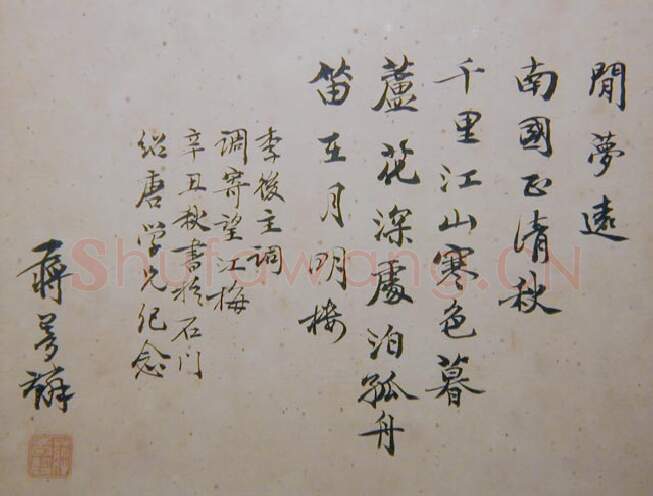 閒夢遠
南國正清秋
千里江山寒色暮
蘆花深處泊孤舟
笛在月明樓
李後主调
调寄望江梅
辛丑秋書於石门
绍唐学兄纪念
蔣夢麟
Shufawang.CN